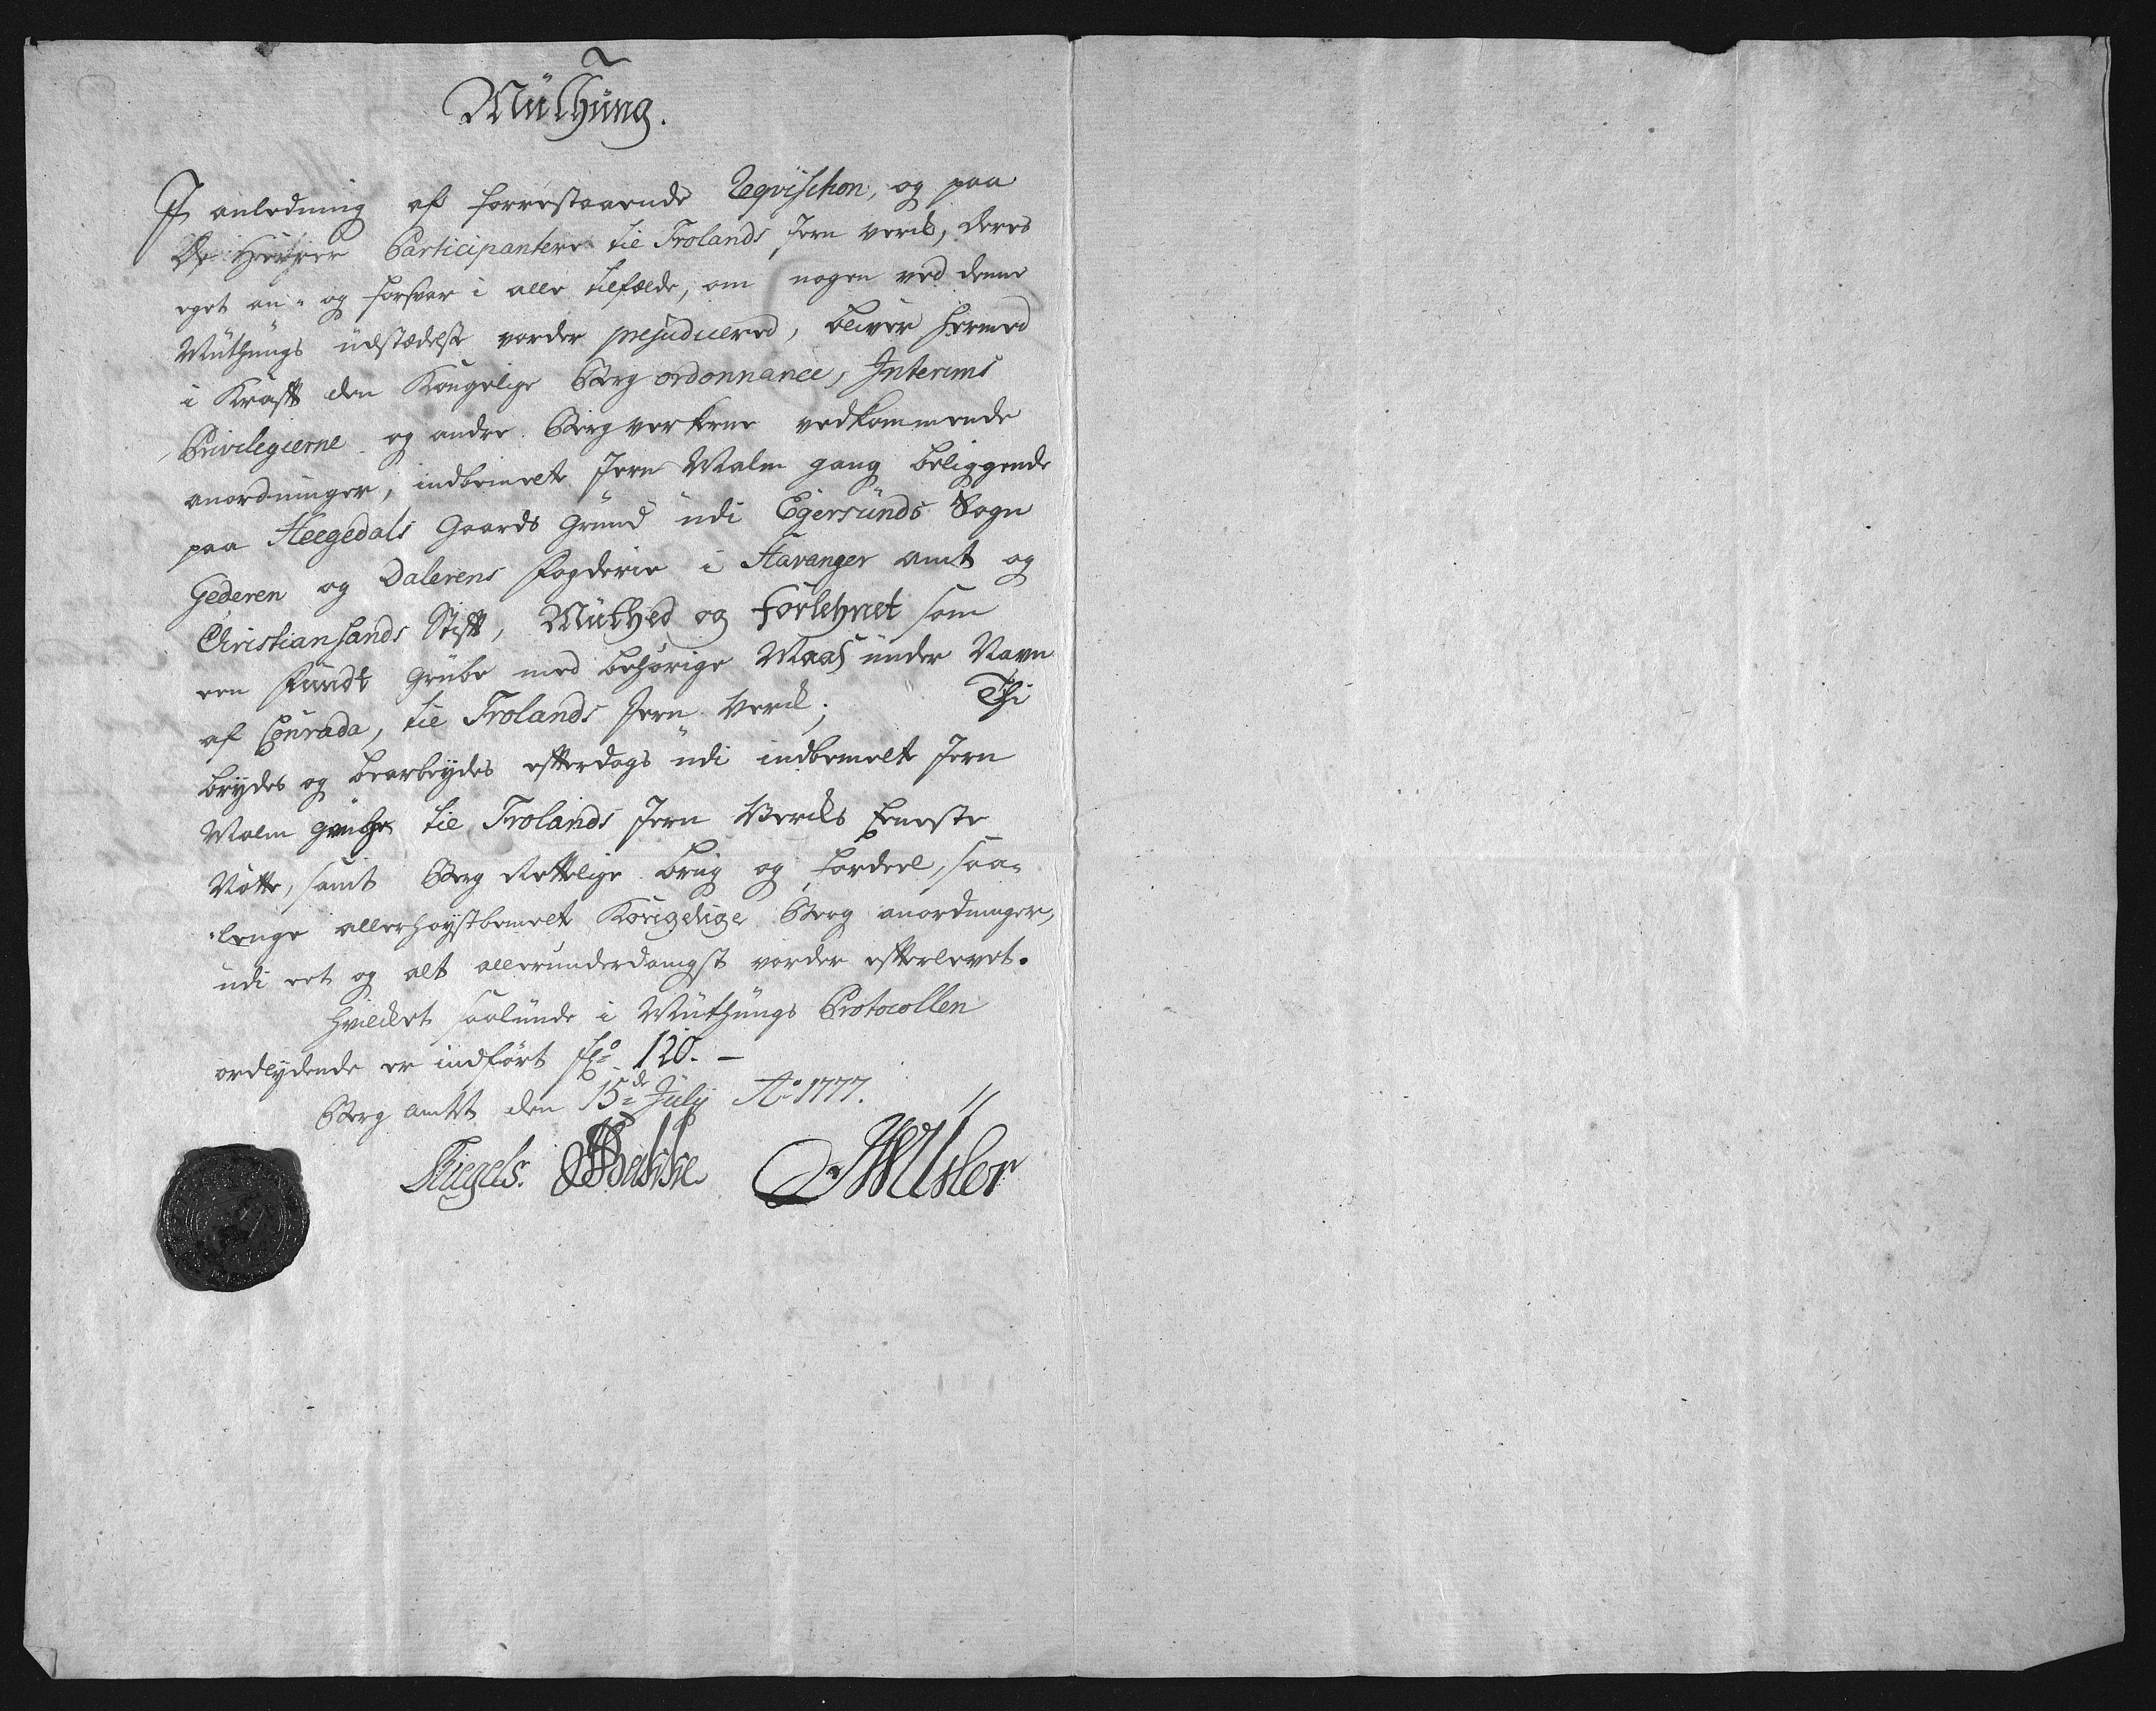 Mùthùng.
I anledning af forrestaaende Reqvisition, og paa
De Herrer Participantere til Frolands Jern verck, deres
eget an- og forsvar i alle tilfælde, om nogen ved denne
Mùthùngs ùdstædelse vorder prejudicered, bliver hermed
i Krafft den Kongelige Berg ordonnance, Interims
Privilegierne og andre Bergverkerne vedkommende
anordninger, indbemelte Jern Malm gang beliggende
paa Heegedals Gaards Grùnd ùdi Egersùnds Sogn
Gederen og Dalerens Fogderie i Stavanger amt og
Christiansands Stifft, Mùthed og Forlehnet som
een Fùndt Grùbe med behörige Maas ùnder Navn
af Conrada, til Frolands Jern Verck; Thi
brydes og bearbeydes efterdags ùdi indbemelte Jern
Malm Grùbe til Frolands Jern Vercks Eeneste
Nötte, samt Berg Rettelige brùg og fordeel, saa-
-lenge allerhöystbemelt Kongelige Berg anordninger,
ùdi eet og alt allerunderdanigst vorder efterlevet.
Hvilcket saalùnde i Mùthùngs Protocollen
ordlydende er indfört Fol: 120. —
Berg amtet den 15de Jùly Ao 1777.